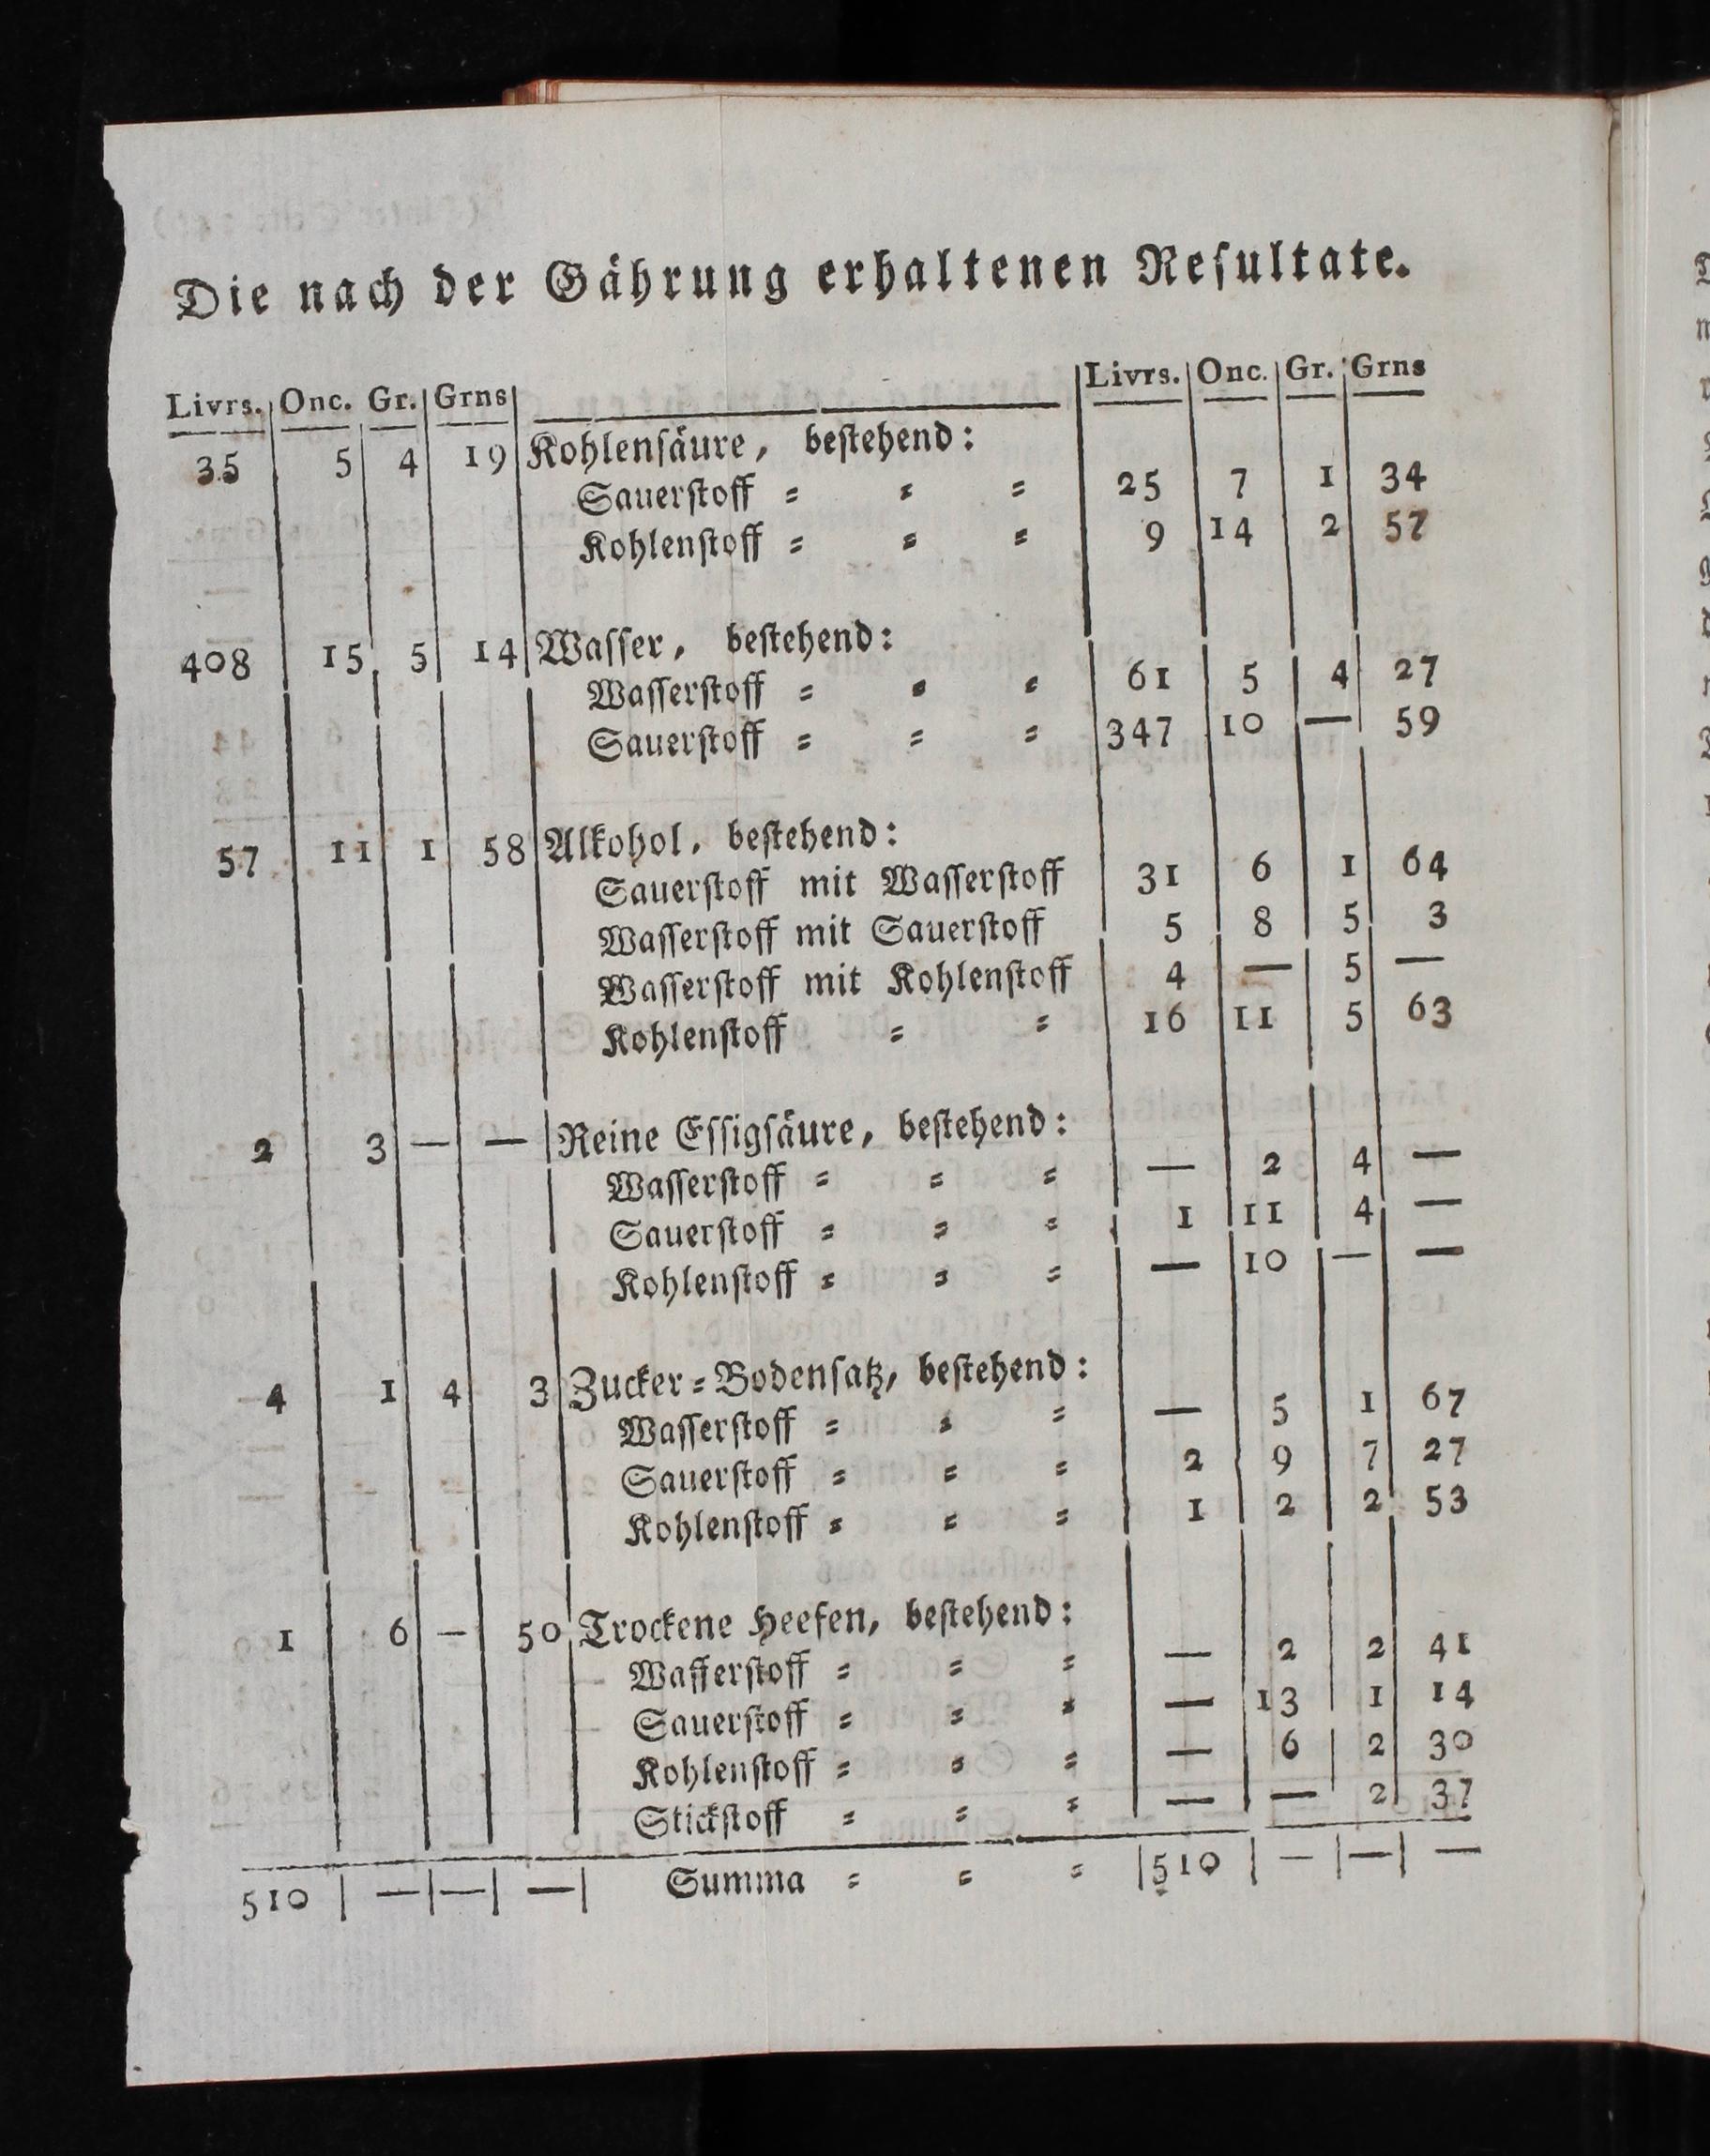 Die nach der Gährung erhaltenen Reſultate.
Livrs. Onc. Gr. Grns Livrs. Onc. Gr. Grns
35 5 4 19 Kohlenſäure, beſtehend:
Sauerſtoff = = = 25 7 1 34
Kohlenſtoff = = = 9 14 2 57
408 15 5 14 Waſſer, beſtehend:
Waſſerſtoff = = = 61 5 4 27
Sauerſtoff = = = 347 10 — 59
57 11 1 58 Alkohol, beſtehend:
Sauerſtoff mit Waſſerſtoff 31 6 1 64
Waſſerſtoff mit Sauerſtoff 5 8 5 3
Waſſerſtoff mit Kohlenſtoff 4 — 5 —
Kohlenſtoff = = 16 11 5 63
2 3 — — Reine Eſſigſäure, beſtehend:
Waſſerſtoff = = = — 2 4 —
Sauerſtoff = = = 1 11 4 —
Kohlenſtoff = = = — 10 — —
4 1 4 3 Zucker=Bodenſatz, beſtehend:
Waſſerſtoff = = = — 5 1 67
Sauerſtoff = = = 2 9 7 27
Kohlenſtoff = = = 1 2 2 53
1 6 — 50 Trockene Heefen, beſtehend:
Wafferſtoff = = = — 2 2 41
Sauerſtoff = = = — 13 1 14
Kohlenſtoff = = = — 6 2 30
Stickſtoff = = = — — 2 37
510 — — — Summa = = = 510 — — —